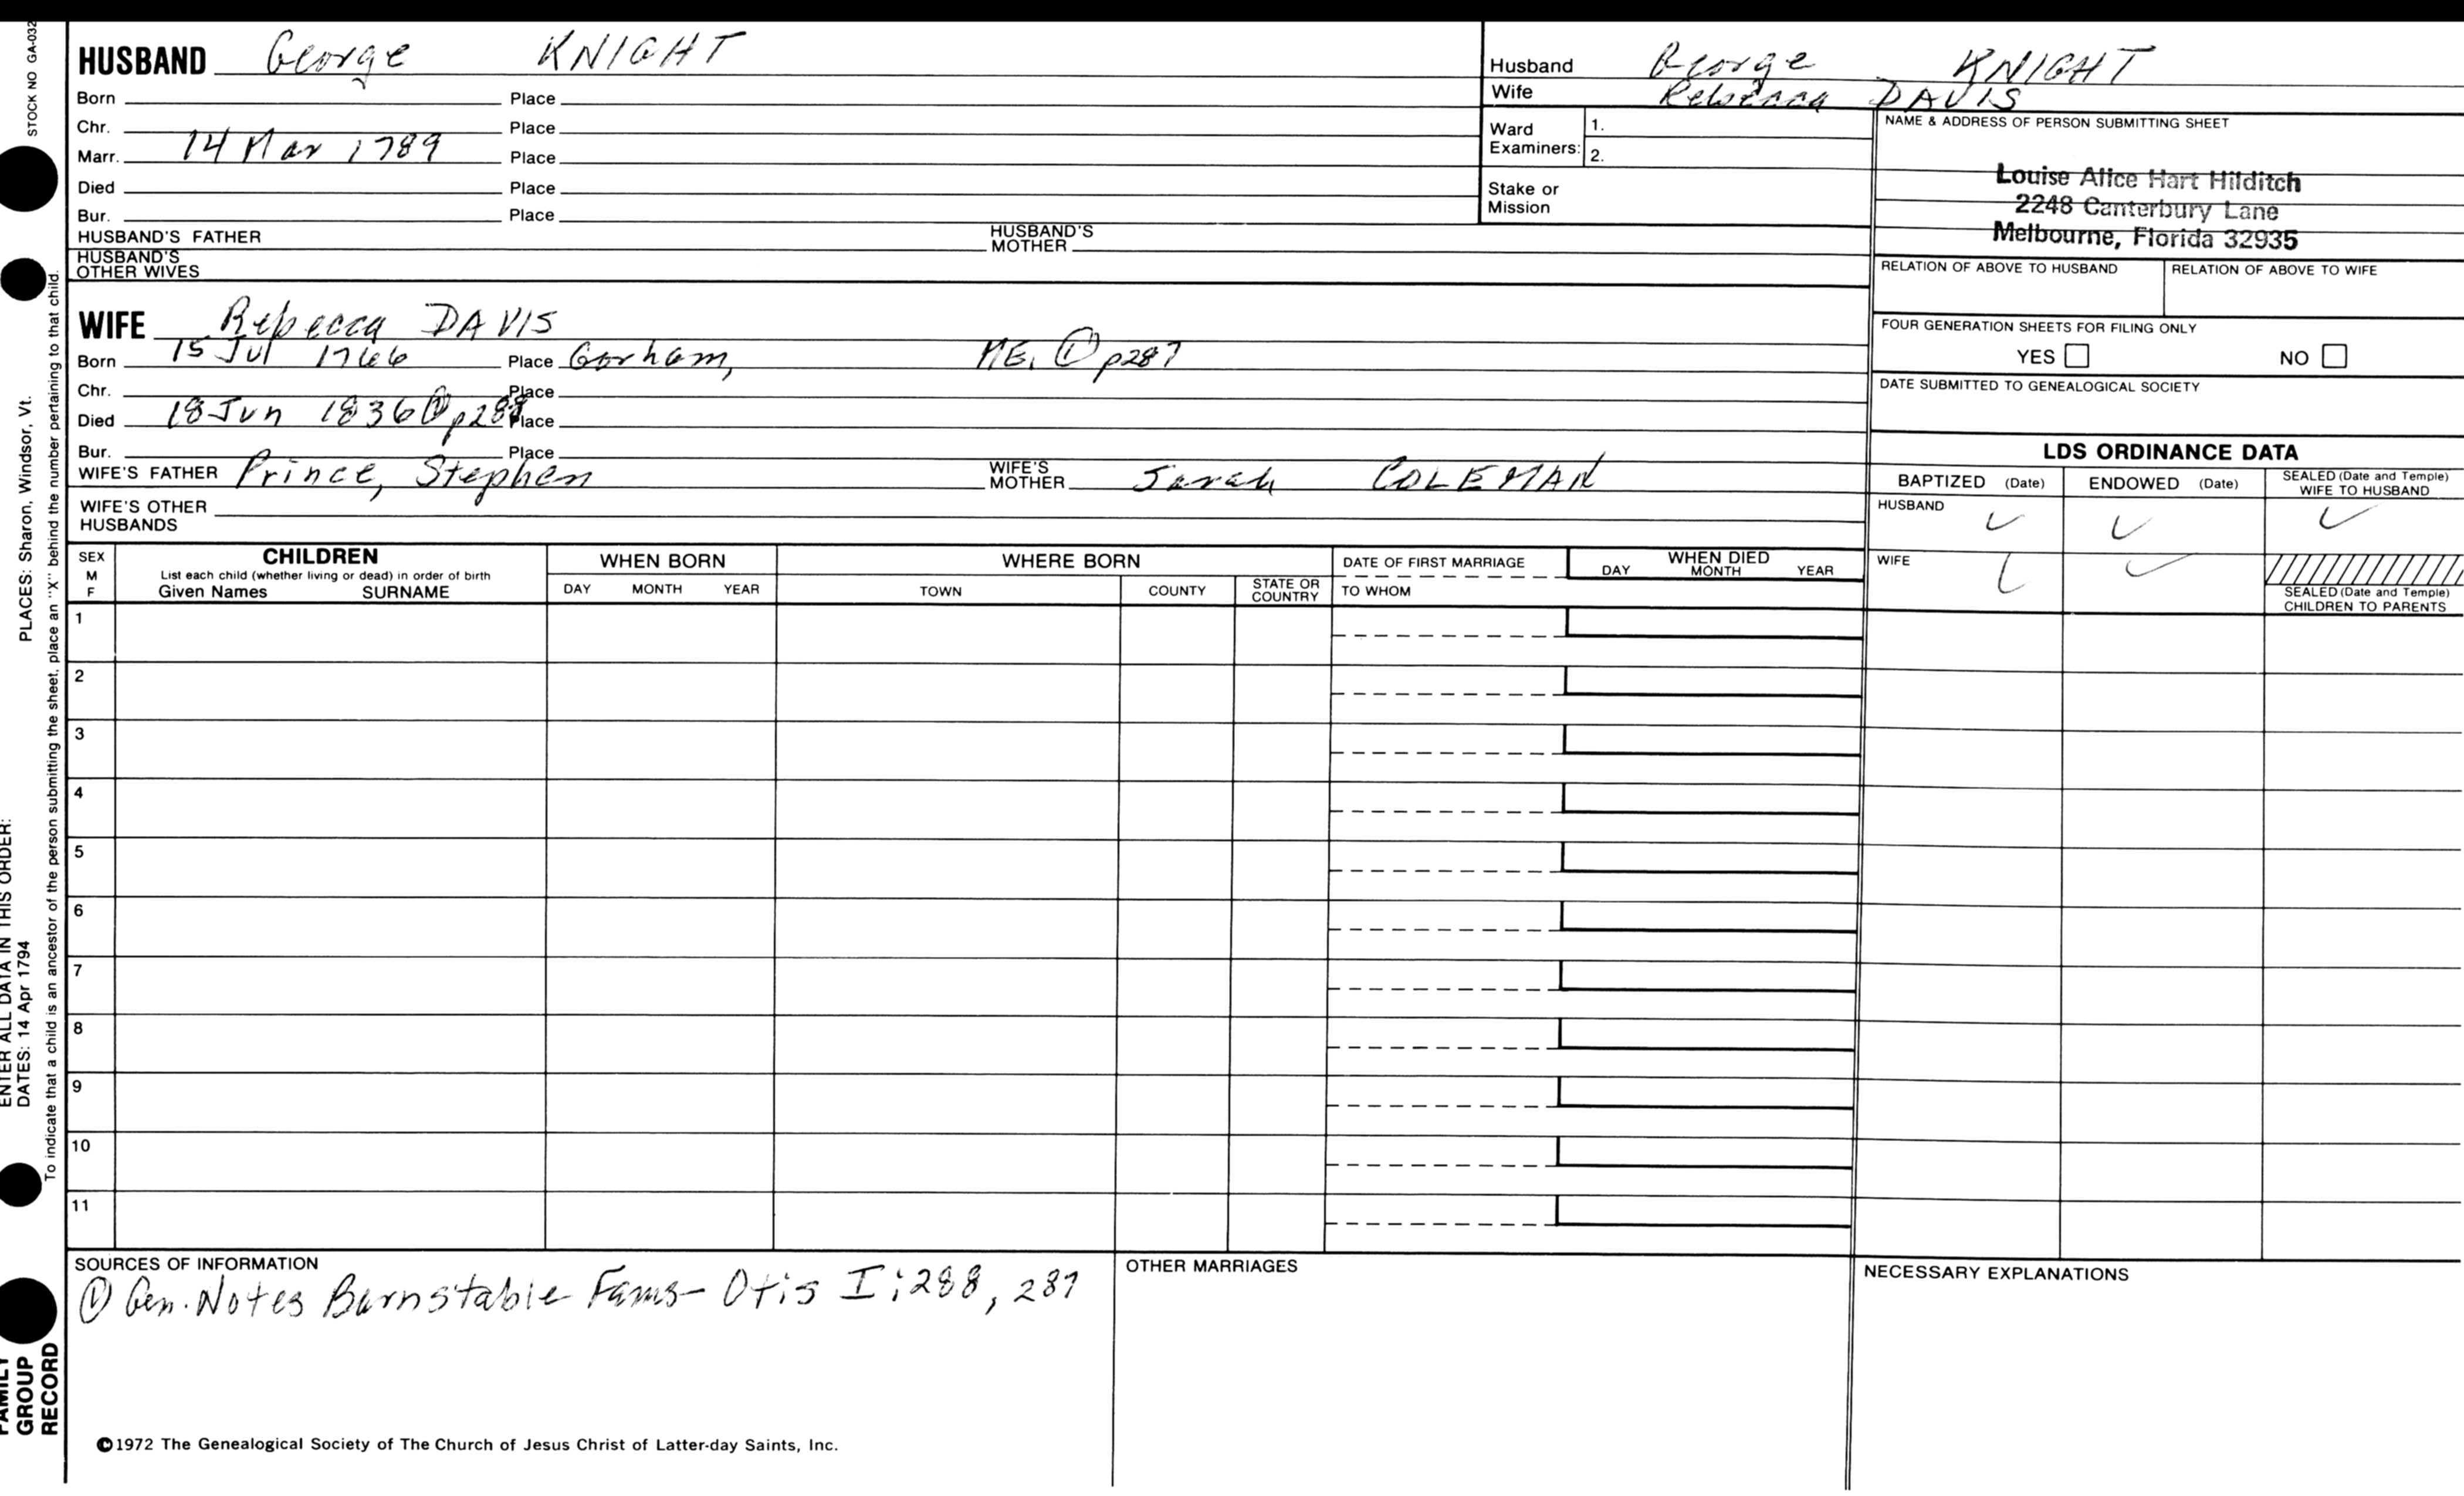 STOCK NO GA-032
HUSBAND George KNIGHT
Born Place
Chr. Place
Marr. 14 Mar 1789 Place
Died Place
Bur. Place
HUSBAND'S FATHER HUSBAND'S MOTHER
HUSBAND'S OTHER WIVES
Husband George KNIGHT
Wife Rebecca DAVIS
Ward Examiners: 1.
2.
Stake or Mission
NAME & ADDRESS OF PERSON SUBMITTING SHEET
Louise Alice Hart Hilditch
2248 Canterbury Lane
Melbourne, Florida 32935
RELATION OF ABOVE TO HUSBAND RELATION OF ABOVE TO WIFE
FOUR GENERATION SHEETS FOR FILING ONLY
YES NO
DATE SUBMITTED TO GENEALOGICAL SOCIETY
WIFE Rebecca DAVIS
Born 15 Jul 1766 Place Gorham, ME. ① p287
Chr. Place
Died 18 Jun 1836 ① p288 Place
Bur. Place
WIFE'S FATHER Prince, Stephen WIFE'S MOTHER Sarah COLEMAN
WIFE'S OTHER HUSBANDS
LDS ORDINANCE DATA
BAPTIZED (Date) ENDOWED (Date) SEALED (Date and Temple) WIFE TO HUSBAND
HUSBAND ✓ ✓ ✓
WIFE ✓ ✓
SEALED (Date and Temple) CHILDREN TO PARENTS
SEX M F
CHILDREN
List each child (whether living or dead) in order of birth
Given Names SURNAME
WHEN BORN
DAY MONTH YEAR
WHERE BORN
TOWN COUNTY STATE OR COUNTRY
DATE OF FIRST MARRIAGE
TO WHOM
WHEN DIED
DAY MONTH YEAR
1
2
3
4
5
6
7
8
9
10
11
SOURCES OF INFORMATION
① Gen. Notes Barnstable Fams - Otis I:288, 287
OTHER MARRIAGES
NECESSARY EXPLANATIONS
©1972 The Genealogical Society of The Church of Jesus Christ of Latter-day Saints, Inc.
ENTER ALL DATA IN THIS ORDER:
DATES: 14 Apr 1794 PLACES: Sharon, Windsor, Vt.
To indicate that a child is an ancestor of the person submitting the sheet, place an "X" behind the number pertaining to that child.
FAMILY
GROUP
RECORD